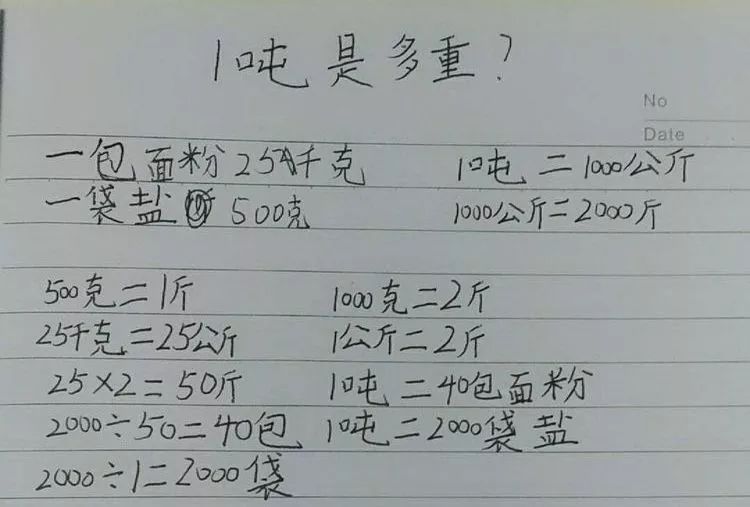 1吨是多重？
No
Date
一包面粉25千克 1吨=1000公斤
一袋盐500克 1000公斤=2000斤
500克=1斤 1000克=2斤
25千克=25公斤 1公斤=2斤
25×2=50斤 1吨=40包面粉
2000÷50=40包 1吨=2000袋盐
2000÷1=2000袋